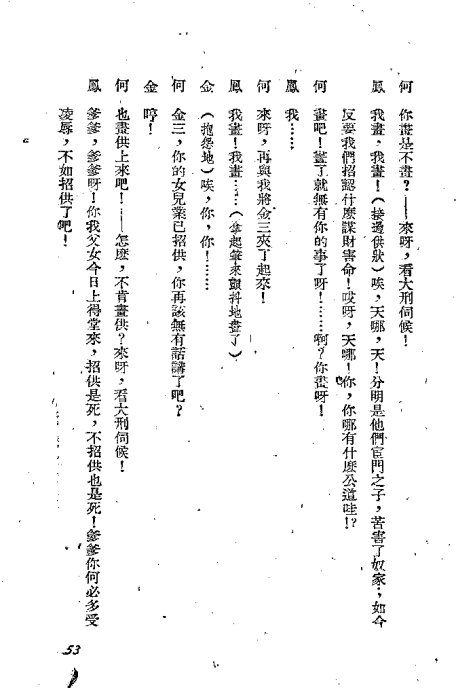 何　你畫是不畫？——來呀，看大刑伺候！
鳳　我畫，我畫！（接過供狀）唉，天哪，天！分明是他們宦門之子，苦害了奴家；如今
反要我們招認什麼謀財害命！哎呀，天哪！你，你哪有什麼公道哇！？
何　畫吧！畫了就無有你的事了呀！……啊？你畫呀！
鳳　我……
何　來呀，再與我將金三夾了起來！
鳳　我畫！我畫……（拿起筆來顫抖地畫了）
金　（抱怨地）唉，你，你！……
何　金三，你的女兒業已招供，你再該無有話講了吧？
金　哼！
何　也畫供上來吧！——怎麼，不肯畫供？來呀，看大刑伺候！
鳳　爹爹，爹爹呀！你我父女今日上得堂來，招供是死，不招供也是死！爹爹你何必多受
凌辱，不如招供了吧！
53